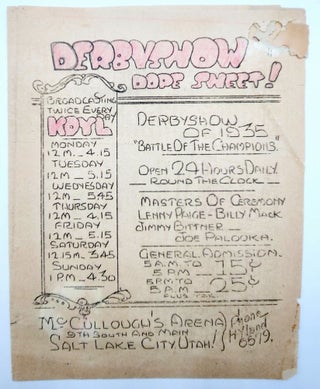 DERBYSHOW
DOPE SHEET!
BROADCASTING
TWICE EVERY DAY
KDYL
MONDAY
12M_4.15
TUESDAY
12M_5.15
WEDNESDAY
12M_5.45
THURSDAY
12M_4.15
FRIDAY
12M_5.15
SATURDAY
12.15M_3.45
SUNDAY
1PM_4.30
DERBYSHOW
OF 1935
"BATTLE OF THE CHAMPIONS"
OPEN 24 HOURS DAILY
ROUND THE CLOCK
MASTERS OF CEREMONY
LENNY PAIGE - BILLY MACK
JIMMY BITTNER -
JOE PALOOKA.
GENERAL ADMISSION
5 A.M. TO
5 PM — 15¢
5 P.M. TO
5 A.M — 25¢
PLUS TAX.
McCULLOUGH'S ARENA
9TH SOUTH AND MAIN
SALT LAKE CITY UTAH!
PHONE
HYLAND
6579.